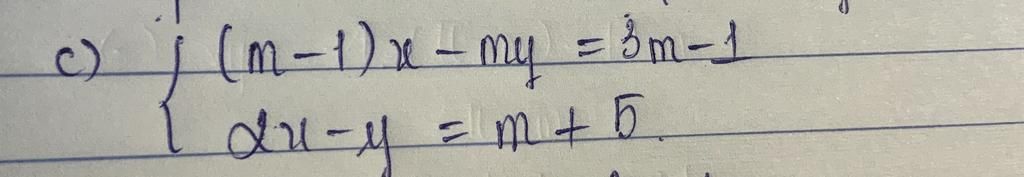 c) { (m-1)x - my = 3m-1
2x - y = m + 5